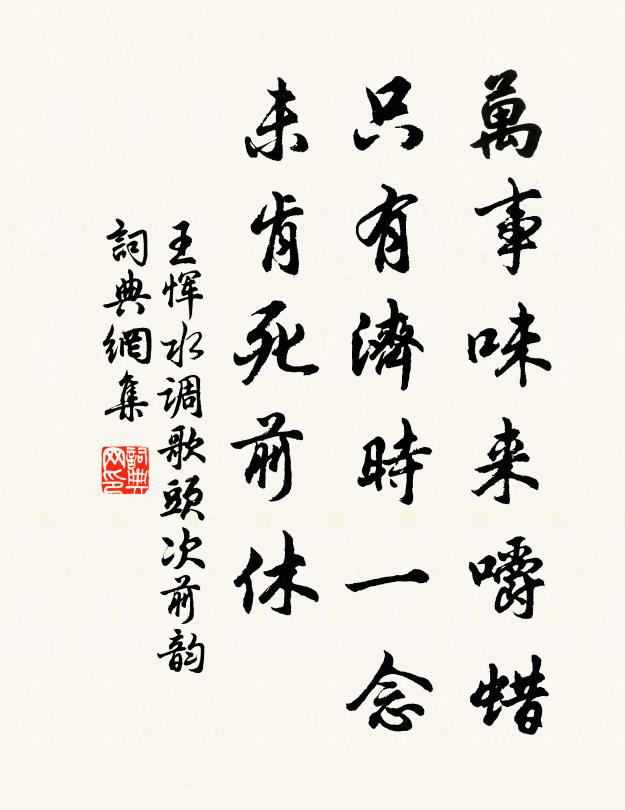 萬事味来嚼蜡
只有濟時一念
未肯死前休
王恽水调歌頭次前韵
詞典網集
詞典网印